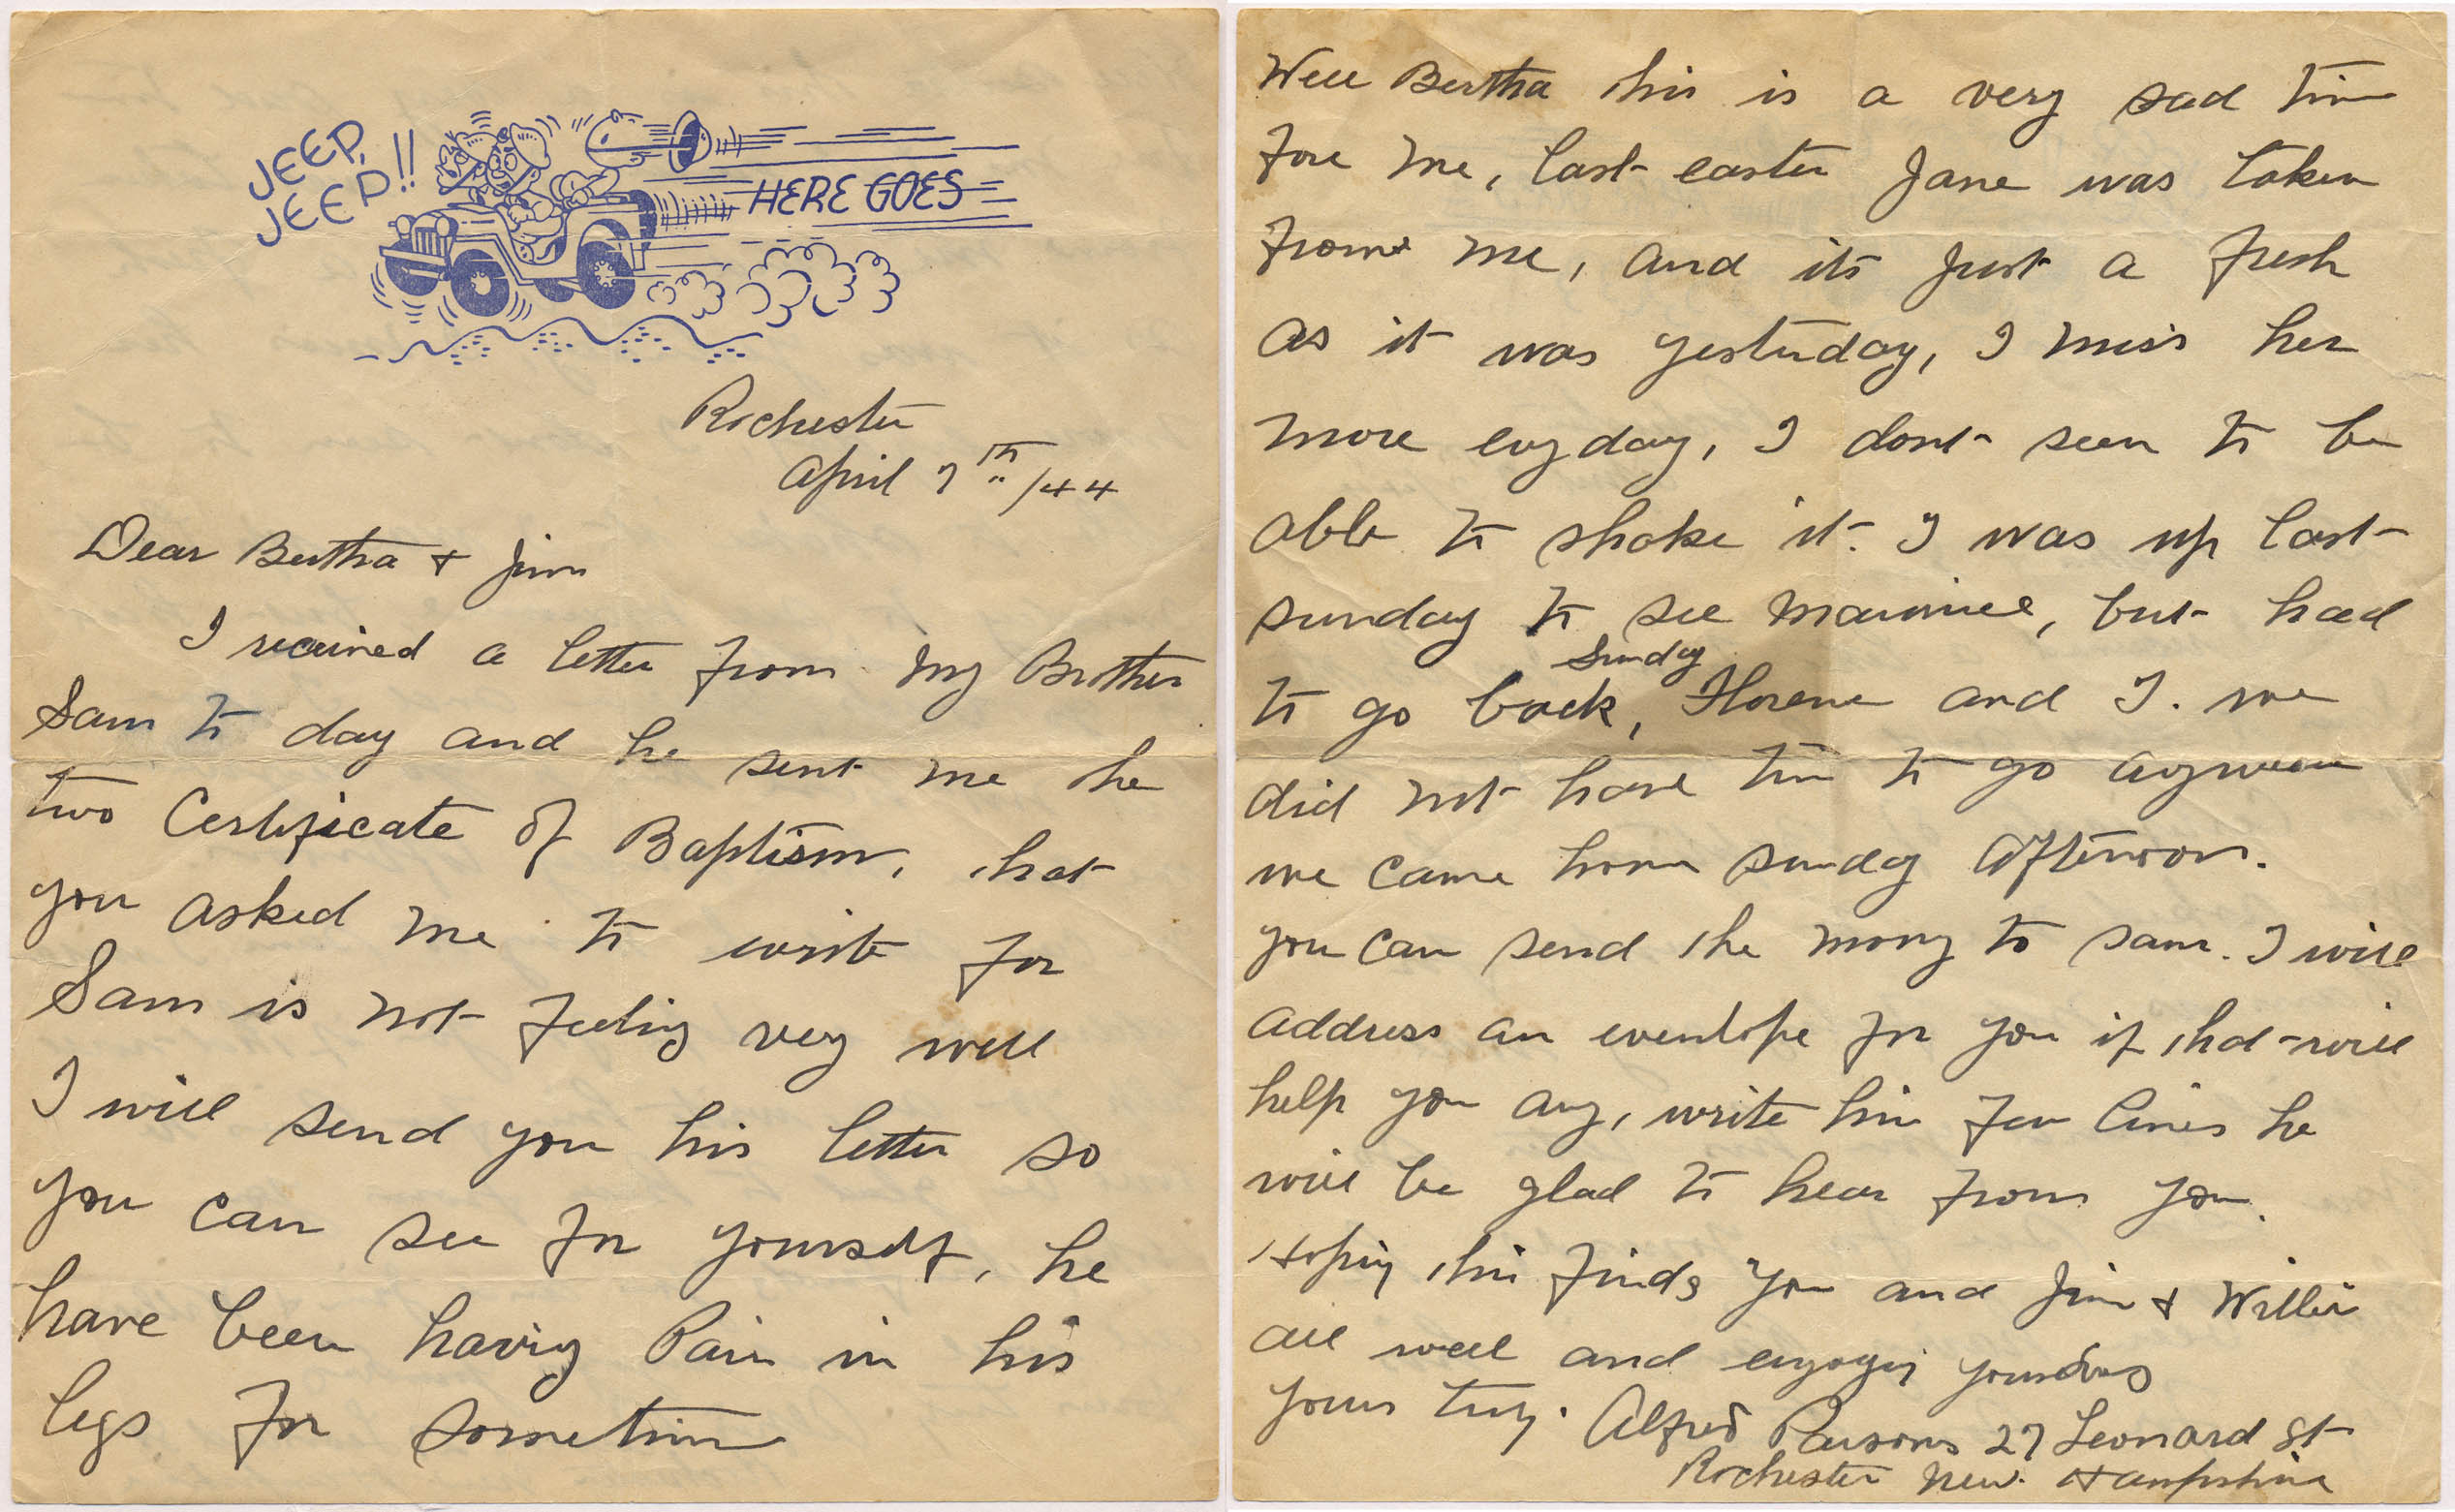 JEEP,
JEEP!!
HERE GOES
Rochester
April 7th /44
Dear Bertha & Jim
I recieved a letter from my Brother
Sam to day and he sent me the
two Certificate of Baptism, that
you asked me to write for
Sam is not feeling very well
I will send you his letter so
you can see for yourself, he
have been having Pain in his
legs for sometime
Well Bertha this is a very sad time
fore me, last easter Jane was taken
from me, and its just a fresh
as it was yesterday, I miss her
more evyday, I dont seem to be
able to shake it. I was up last
sunday to see Mamie, but had
Sunday
to go back, Florene and I. we
did not have time to go
we came home sunday afternoon.
you can send the mony to Sam. I will
address an evenlope for you if that will
help you any, write him few lines he
will be glad to hear from you.
Hoping this finds you and Jim & Willie
all well and yourselves
yours truly. Alfred Parsons 27 Leonard St
Rochester New. Hampshire